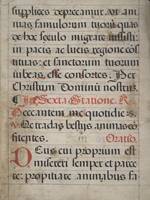 supplices deprecamur. ut ani
mas famulorum tuorū quas
de hoc seculo migrare iussisti:
in pacis ac lucis regione cōs
tituas: et sanctorum tuorum
iubeas esse consortes. Per
Christum Dominū nostrū.
Sexta Statione. R.
Peccantem me quotidie.
Ne tradas bestijs animas cō
fitentes. Oratio.
Deus cui proprium est
misereri semper et parce
re: propitiare animabus fa